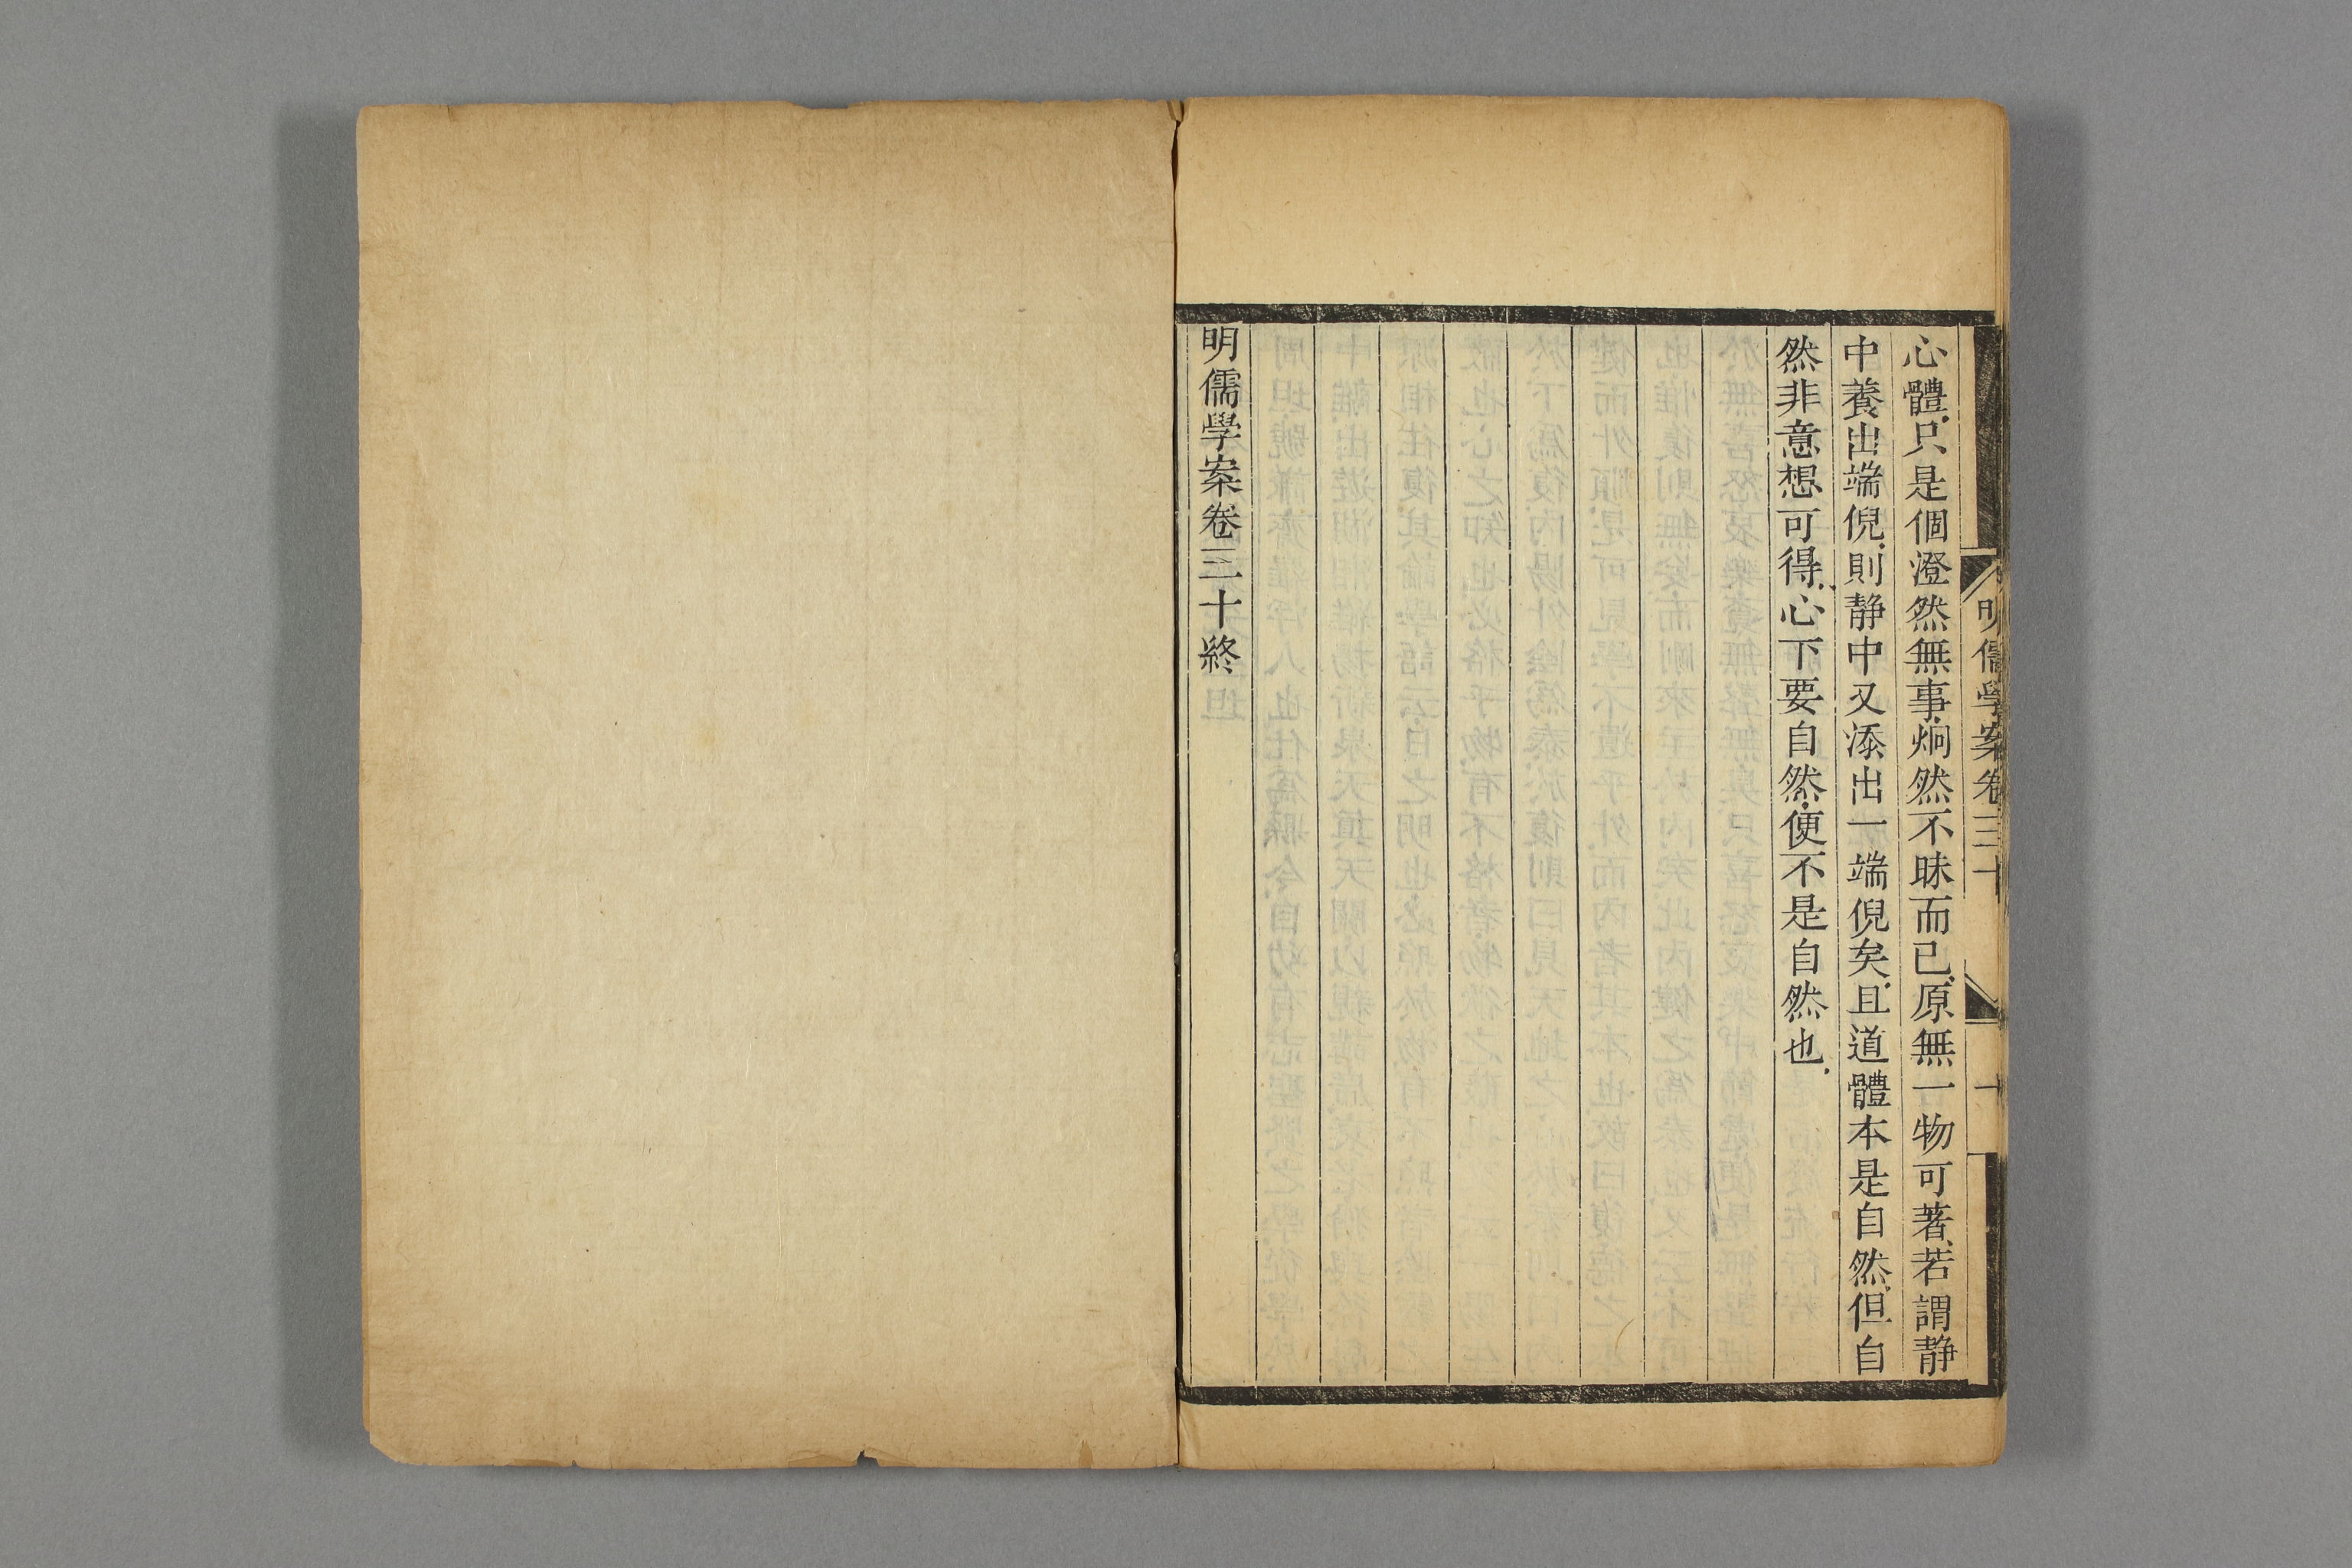 明儒學案卷三十
十
心體只是個澄然無事炯然不昧而已原無一物可著若謂静
中養出端倪則静中又添出一端倪矣且道體本是自然但自
然非意想可得心下要自然便不是自然也
明儒學案卷三十終